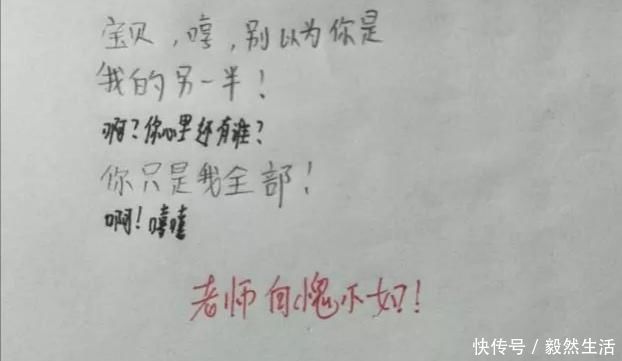 宝贝,嘻,别以为你是
我的另一半!
啊?你心里还有谁?
你只是我全部!
啊!嘻嘻
老师自愧不如!
快传号/毅然生活